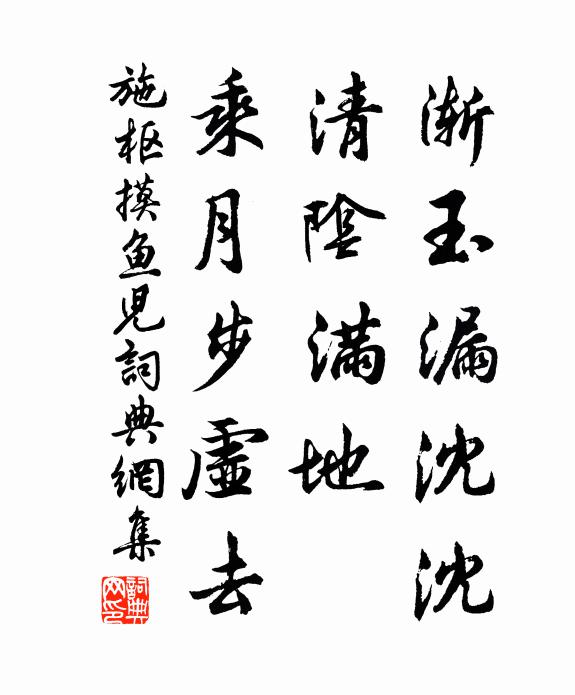 渐玉漏沈沈
清陰满地
乘月步虛去
施枢摸鱼児詞典網集
詞典网印